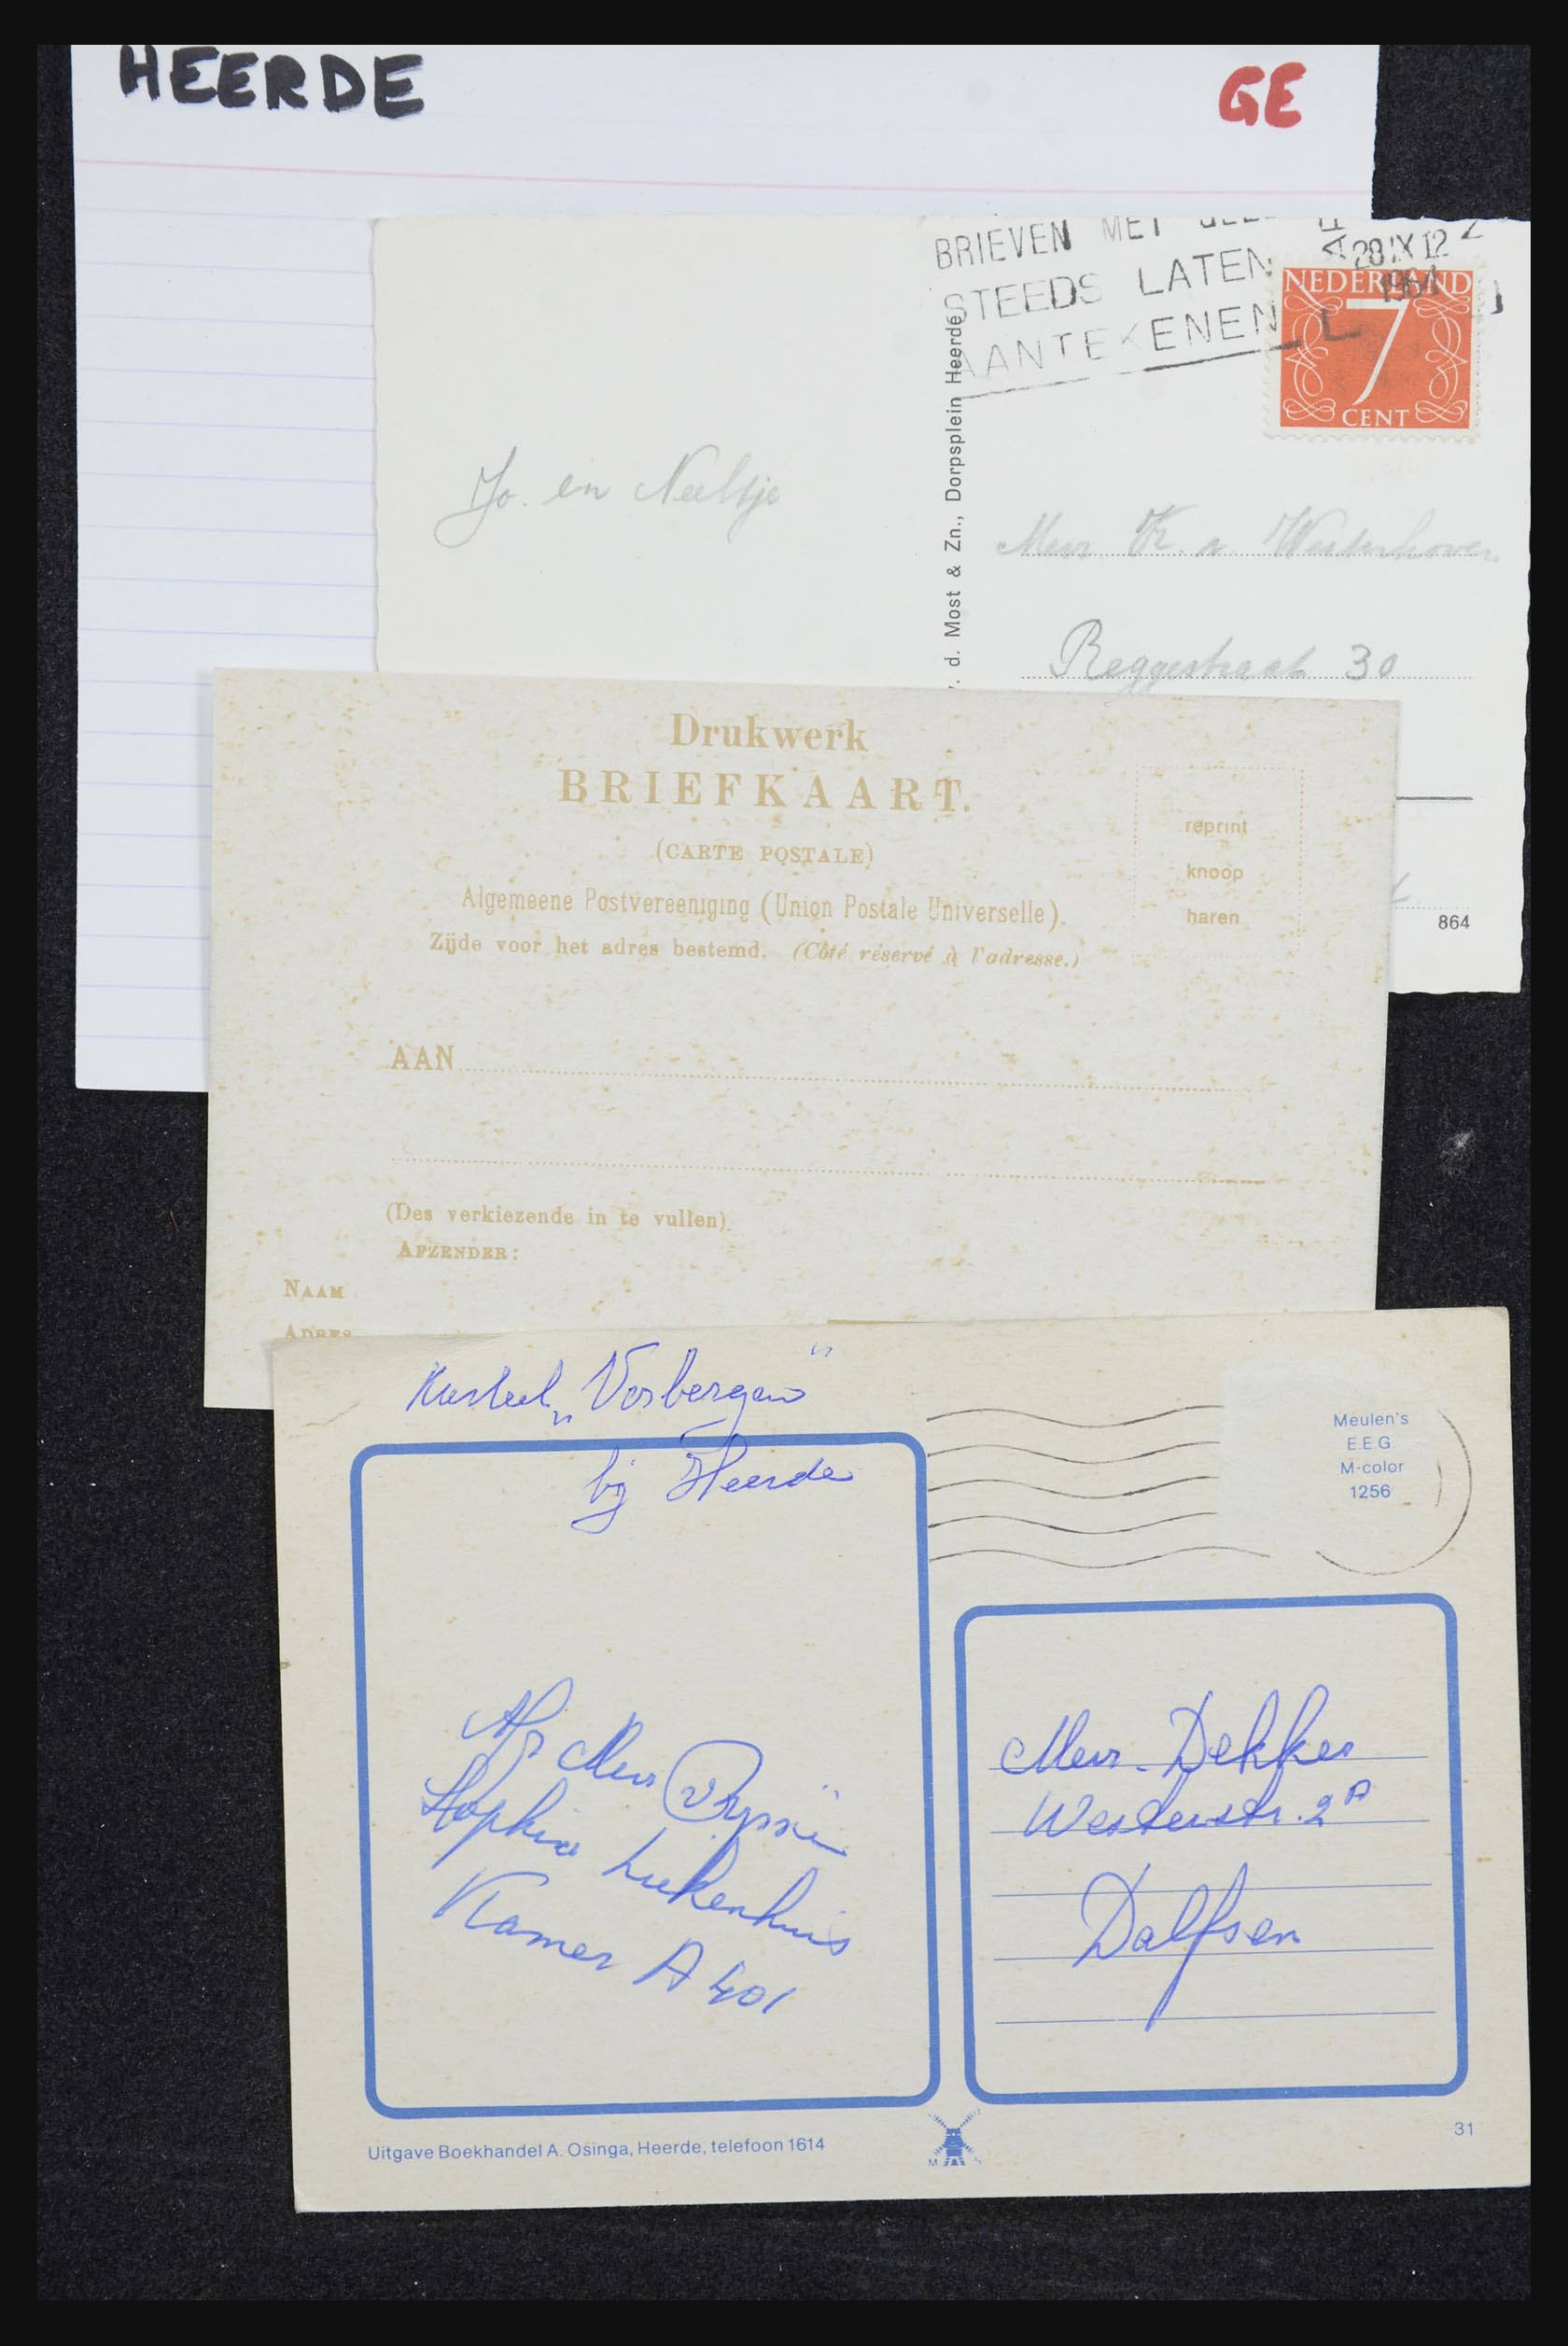 HEERDE
GE
BRIEVEN MET
STEEDS LATEN
AANTEKENEN
28 IX 12
1964
NEDERLAND
7
CENT
d. Most & Zn., Dorpsplein Heerde
Jo. en Neeltje
Mevr
Reggestraat 30
864
Drukwerk
BRIEFKAART.
(CARTE POSTALE)
Algemeene Postvereeniging (Union Postale Universelle).
Zijde voor het adres bestemd. (Côté réservé à l'adresse.)
reprint
knoop
haren
AAN
(Des verkiezende in te vullen).
AFZENDER:
NAAM
ADRES
Kasteel „Vosbergen"
bij Heerde
Meulen's
E.E.G
M-color
1256
Afz Mevr
Sophia Ziekenhuis
Kamer A 401
Mevr. Dekker
Westerstr. 2A
Dalfsen
Uitgave Boekhandel A. Osinga, Heerde, telefoon 1614
M S
31